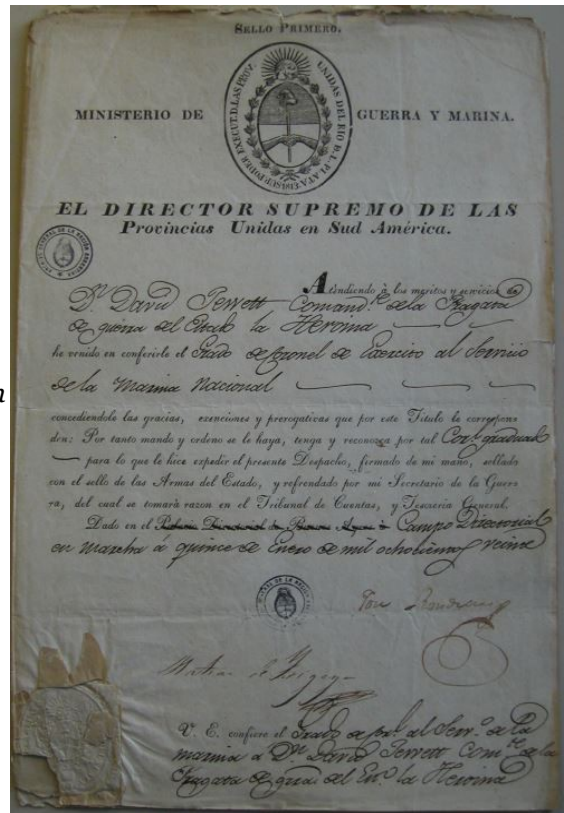 SELLO PRIMERO.
SUP. PODER EXECUT. D. LAS PROV. UNIDAS DEL RIO D. L. PLATA
MINISTERIO DE GUERRA Y MARINA.
EL DIRECTOR SUPREMO DE LAS
Provincias Unidas en Sud América.
Atendiendo à los meritos y servicios de
Dn. David Jewett Comandte. de la Fragata
de guerra del Estado la Heroina
he venido en conferirle el Grado de Coronel de Exercito al Servicio
de la Marina Nacional
n
concediendole las gracias, exenciones y prerogativas que por este Titulo le correspon-
den: Por tanto mando y ordeno se le haya, tenga y reconozca por tal Corl. graduado
para lo que le hice expedir el presente Despacho, firmado de mi mano, sellado
con el sello de las Armas del Estado, y refrendado por mi Secretario de la Guer-
ra, del cual se tomará razon en el Tribunal de Cuentas, y Tesoreria General.
Dado en el Campo Directorial
en marcha a quince de Enero de mil ochocientos veinte
Matias de Irigoyen
V. E. confiere el Grado de al Serv.o de la
marina a Dn. David Jewett Comte. de la
Fragata de gra. del Eo. la Heroina